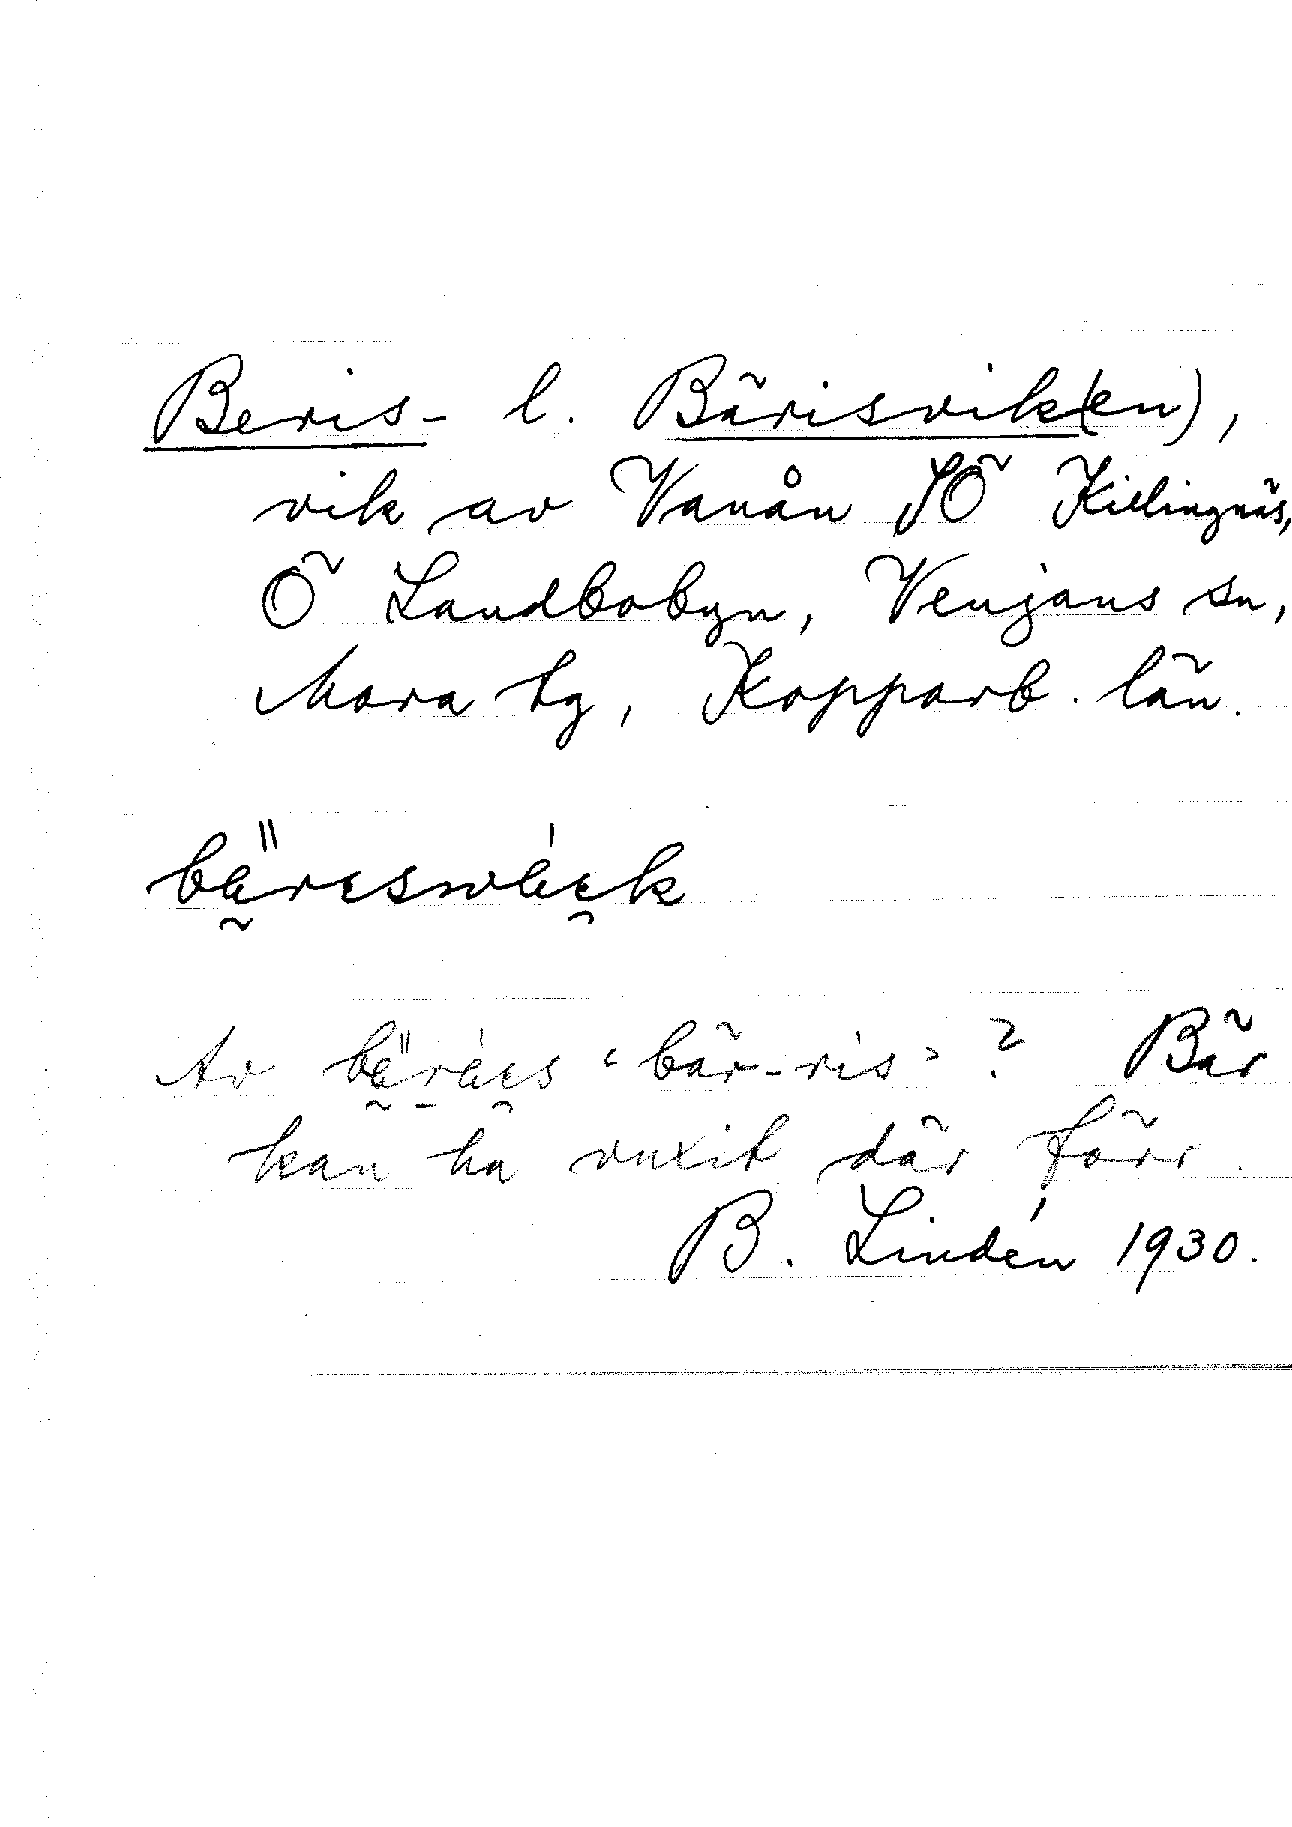 Beris- l. Bärisvik(en),
vik av Vanån SÖ Killingnäs,
Ö Landbobyn, Venjans sn,
Mora tg, Kopparb. län.
Av "bär-ris"? Bär
kan ha vuxit där förr.
B. Lindén 1930.